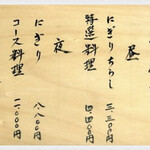 昼
にぎりちらし 三.三〇〇円
特選料理 四.四〇〇円
夜
にぎり 八八〇〇円
コース料理 一一.〇〇〇円